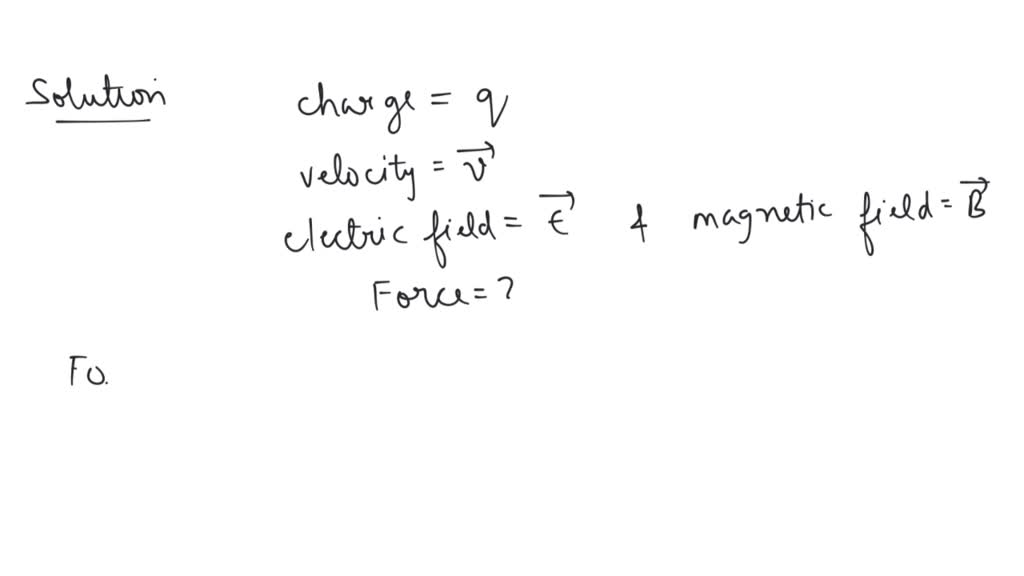 Solution
charge = q
velocity = v⃗
electric field = E⃗ & magnetic field = B⃗
Force = ?
Fo.